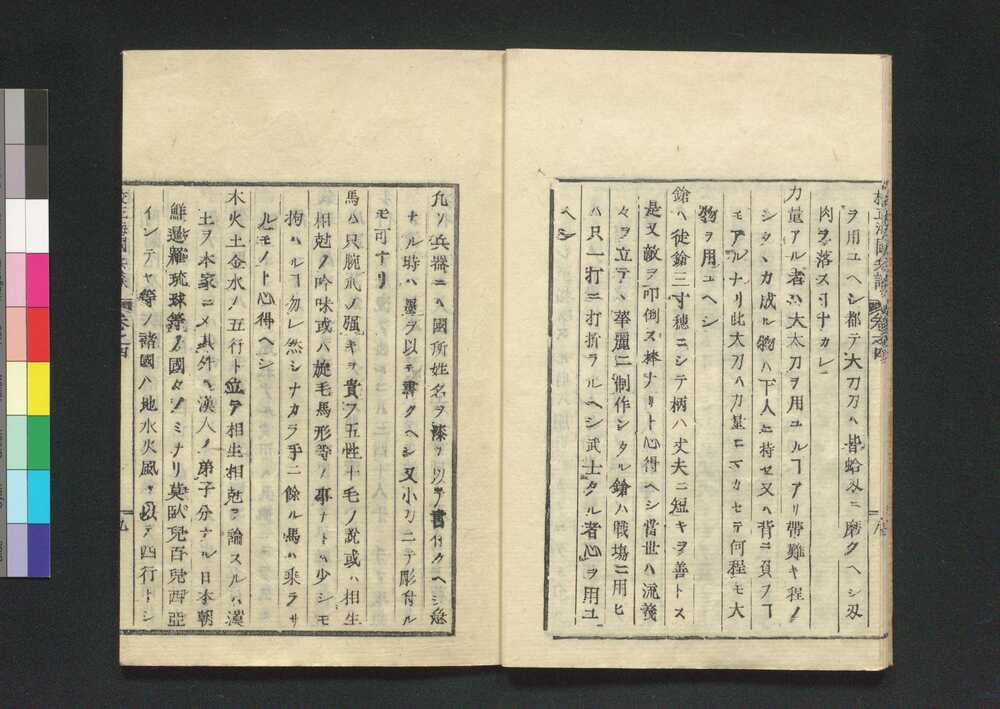 ヲ用ユヘシ都テ大刀刀ハ皆蛤刄ニ磨クヘシ刄
肉ヲ落スヿナカレ
力量アル者ハ大太刀ヲ用ユルヿアリ帶難キ程ノ
シタヽカ成ル物ハ下人ニ持セ又ハ背ニ負フヿ
モアルナリ此大刀ハ力量ニマカセテ何程モ大
物ヲ用ユヘシ
鎗ハ徒鎗三寸穂ニシテ柄ハ丈夫ニ短キヲ善トス
是又敵ヲ叩倒ス棒ナリト心得ヘシ當世ハ流義
々ヲ立テヽ華麗ニ制作シタル鎗ハ戰塲ニ用ヒ
ハ只一打ニ打折ラルヘシ武士タル者心ヲ用ユ
ヘシ
凢ソ兵器ニハ國所姓名ヲ漆ヲ以テ書付クヘシ急
ナル時ハ墨ヲ以テ書クヘシ又小刀ニテ彫付ル
モ可ナリ
馬ハ只腕爪ノ强キヲ貴フ五性十毛ノ説或ハ相生
相尅ノ吟味或ハ旋毛馬形等ノ事ナトハ少シモ
拘ハルヿ勿レ然シナカラ手ニ餘ル馬ハ乘ラサ
ルモノト心得ヘシ
木火土金水ノ五行ト立テ相生相尅ヲ論スルハ漢
土ヲ本家ニメ其外ハ漢人ノ弟子分ナル日本朝
鮮暹羅琉球等ノ國々ノミナリ莫臥兒百兒西亞
インテヤ等ノ諸國ハ地水火風ヲ以テ四行トシ